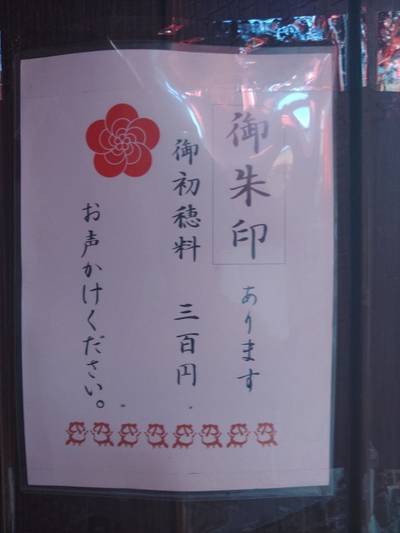 御朱印 あります
御初穂料 三百円
お声かけください。